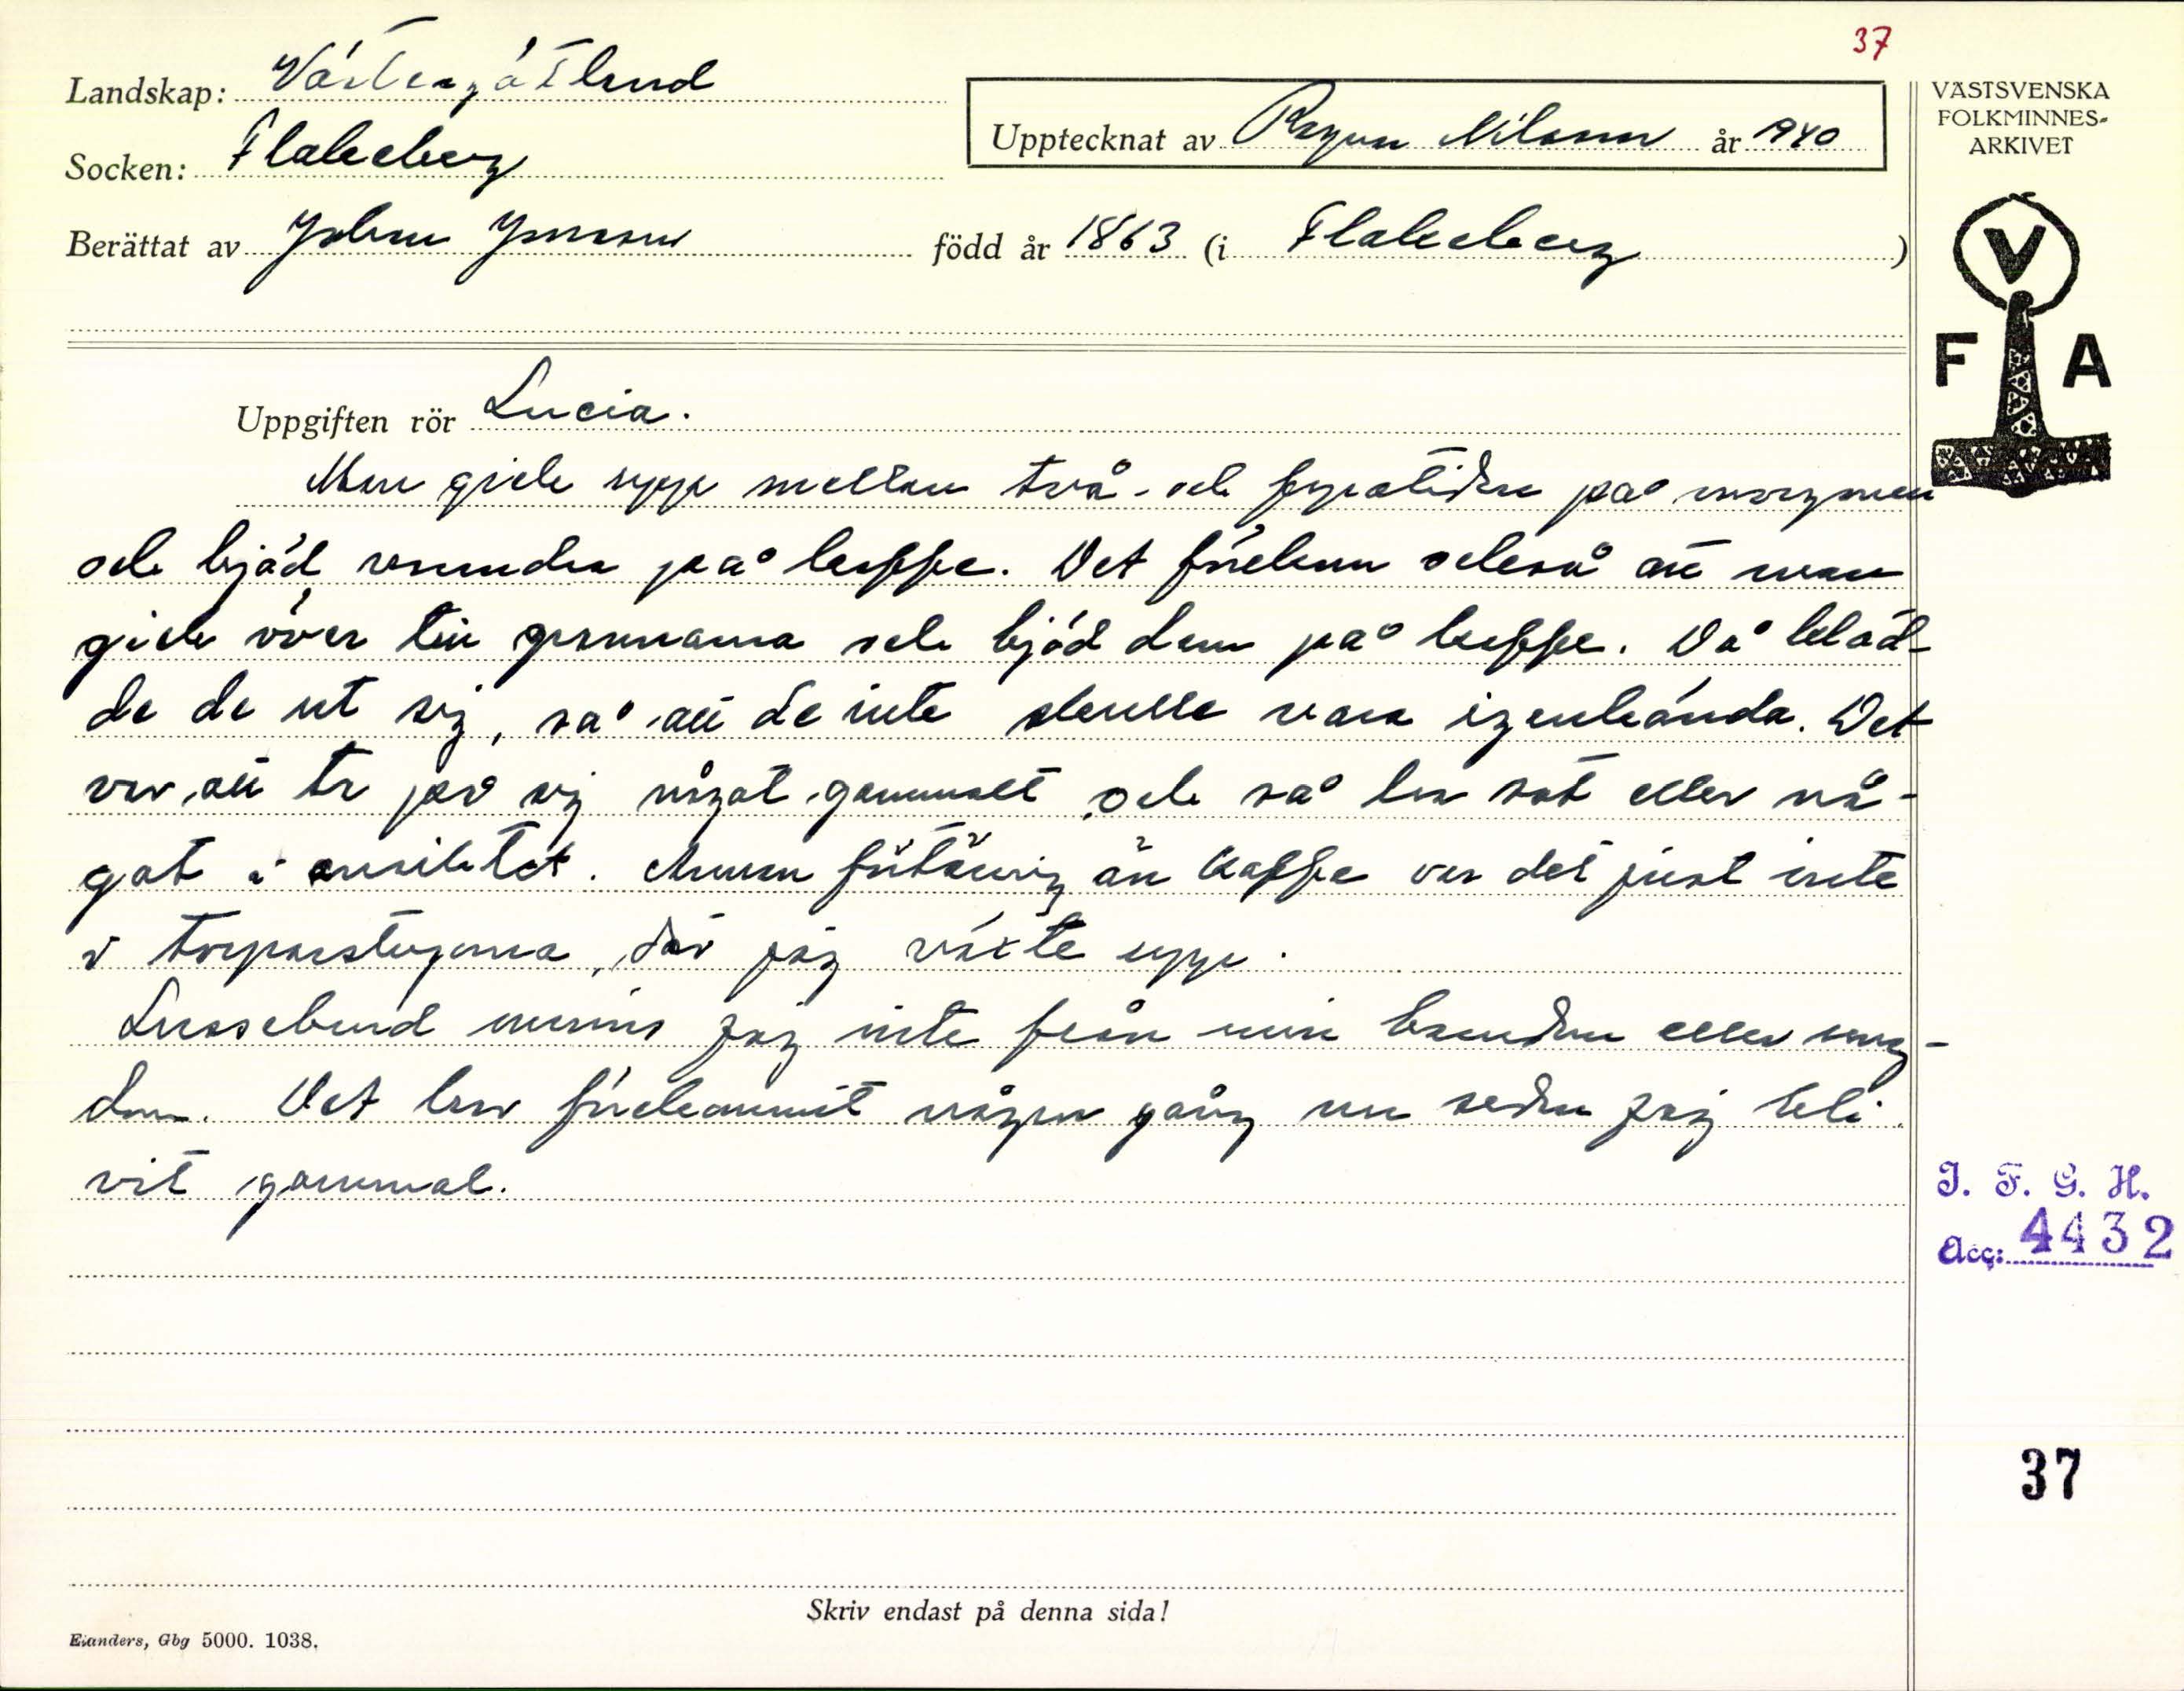 37
Landskap: Västergötland
Socken: Flakeberg
Upptecknat av Ragnar Nilsson år 1940
Berättat av Johan Jonsson född år 1863 (i Flakeberg)
VÄSTSVENSKA
FOLKMINNES-
ARKIVET
V
F A
Uppgiften rör Lucia.
Man gick upp mellan två- och fyratiden på morgonen
och bjöd varandra på kaffe. Det förekom också att man
gick över till grannarna och bjöd dem på kaffe. Då kläd-
de de ut sig, så att de inte skulle vara igenkända. Det
var att ta på sig något gammalt och så ha sot eller nå-
got i ansiktet. Annan förtäring än kaffe var det just inte
i torparstugorna, där jag växte upp.
Lussebrud minns jag inte från min barndom eller ung-
dom. Det har förekommit någon gång nu sedan jag bli-
vit gammal.
I. F. G. H.
Acc: 4432
37
Skriv endast på denna sida!
Elanders, Gbg 5000. 1038.